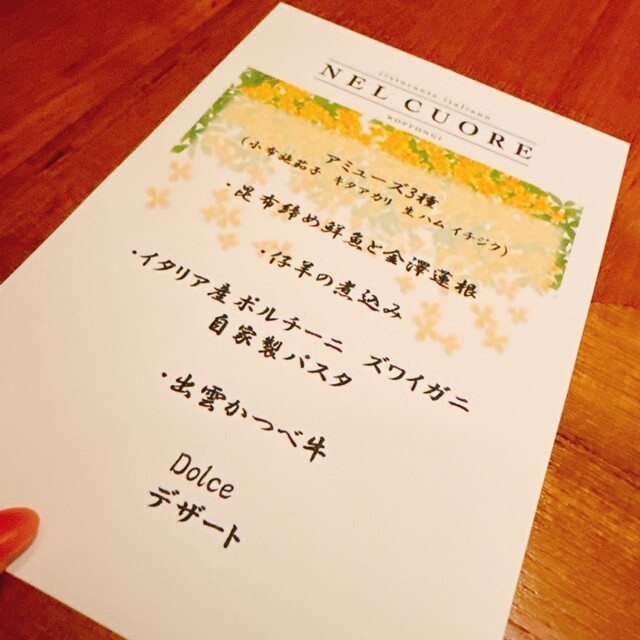 ristorante italiano
NEL CUORE
ROPPONGI
アミューズ3種
(小布施茄子 キタアカリ 生ハムイチジク)
・昆布締め鮮魚と金澤蓮根
・仔羊の煮込み
・イタリア産ポルチーニ ズワイガニ
自家製パスタ
・出雲かつべ牛
Dolce
デザート